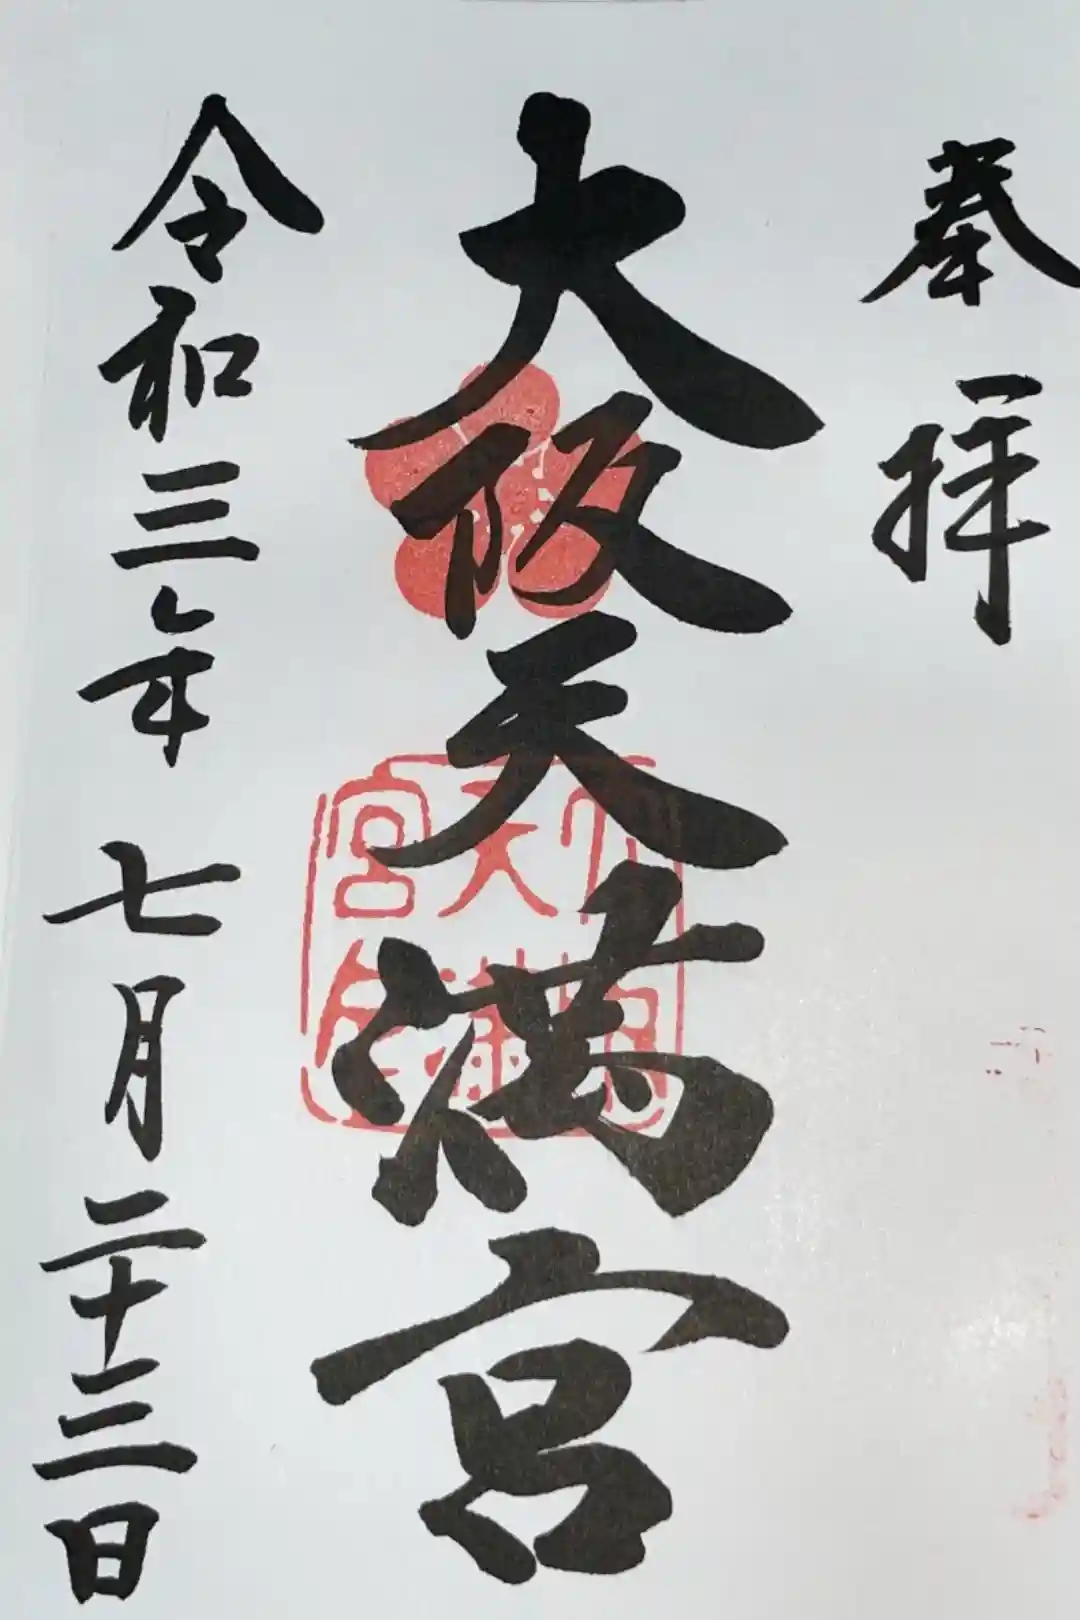 奉拝
大阪天満宮
令和三年七月二十三日
大阪天満宮印